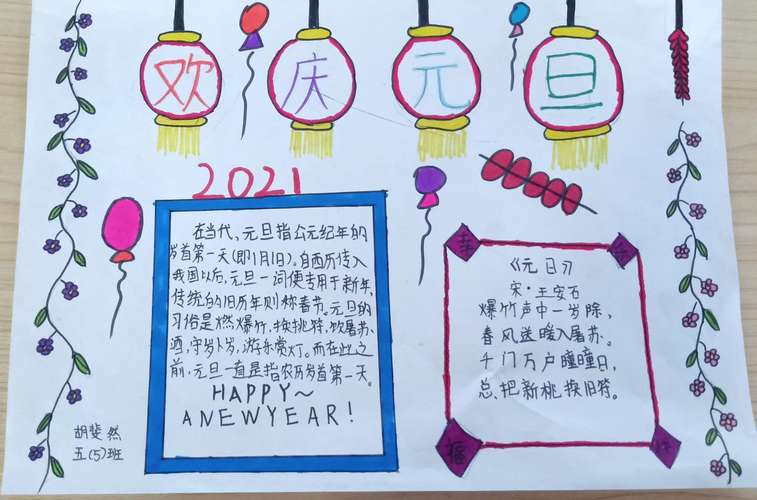 欢庆元旦
2021
在当代，元旦指公元纪年的
岁首第一天(即1月1日)。自西历传入
我国以后，元旦一词便专用于新年，
传统的旧历年则称春节。元旦的
习俗是燃爆竹，换挑符，饮屠苏
酒，守岁卜岁，游乐赏灯。而在此之
前，元旦一直是指农历岁首第一天。
HAPPY~
A NEW YEAR!
《元日》
宋·王安石
爆竹声中一岁除，
春风送暖入屠苏。
千门万户曈曈日，
总把新桃换旧符。
胡斐然
五(5)班